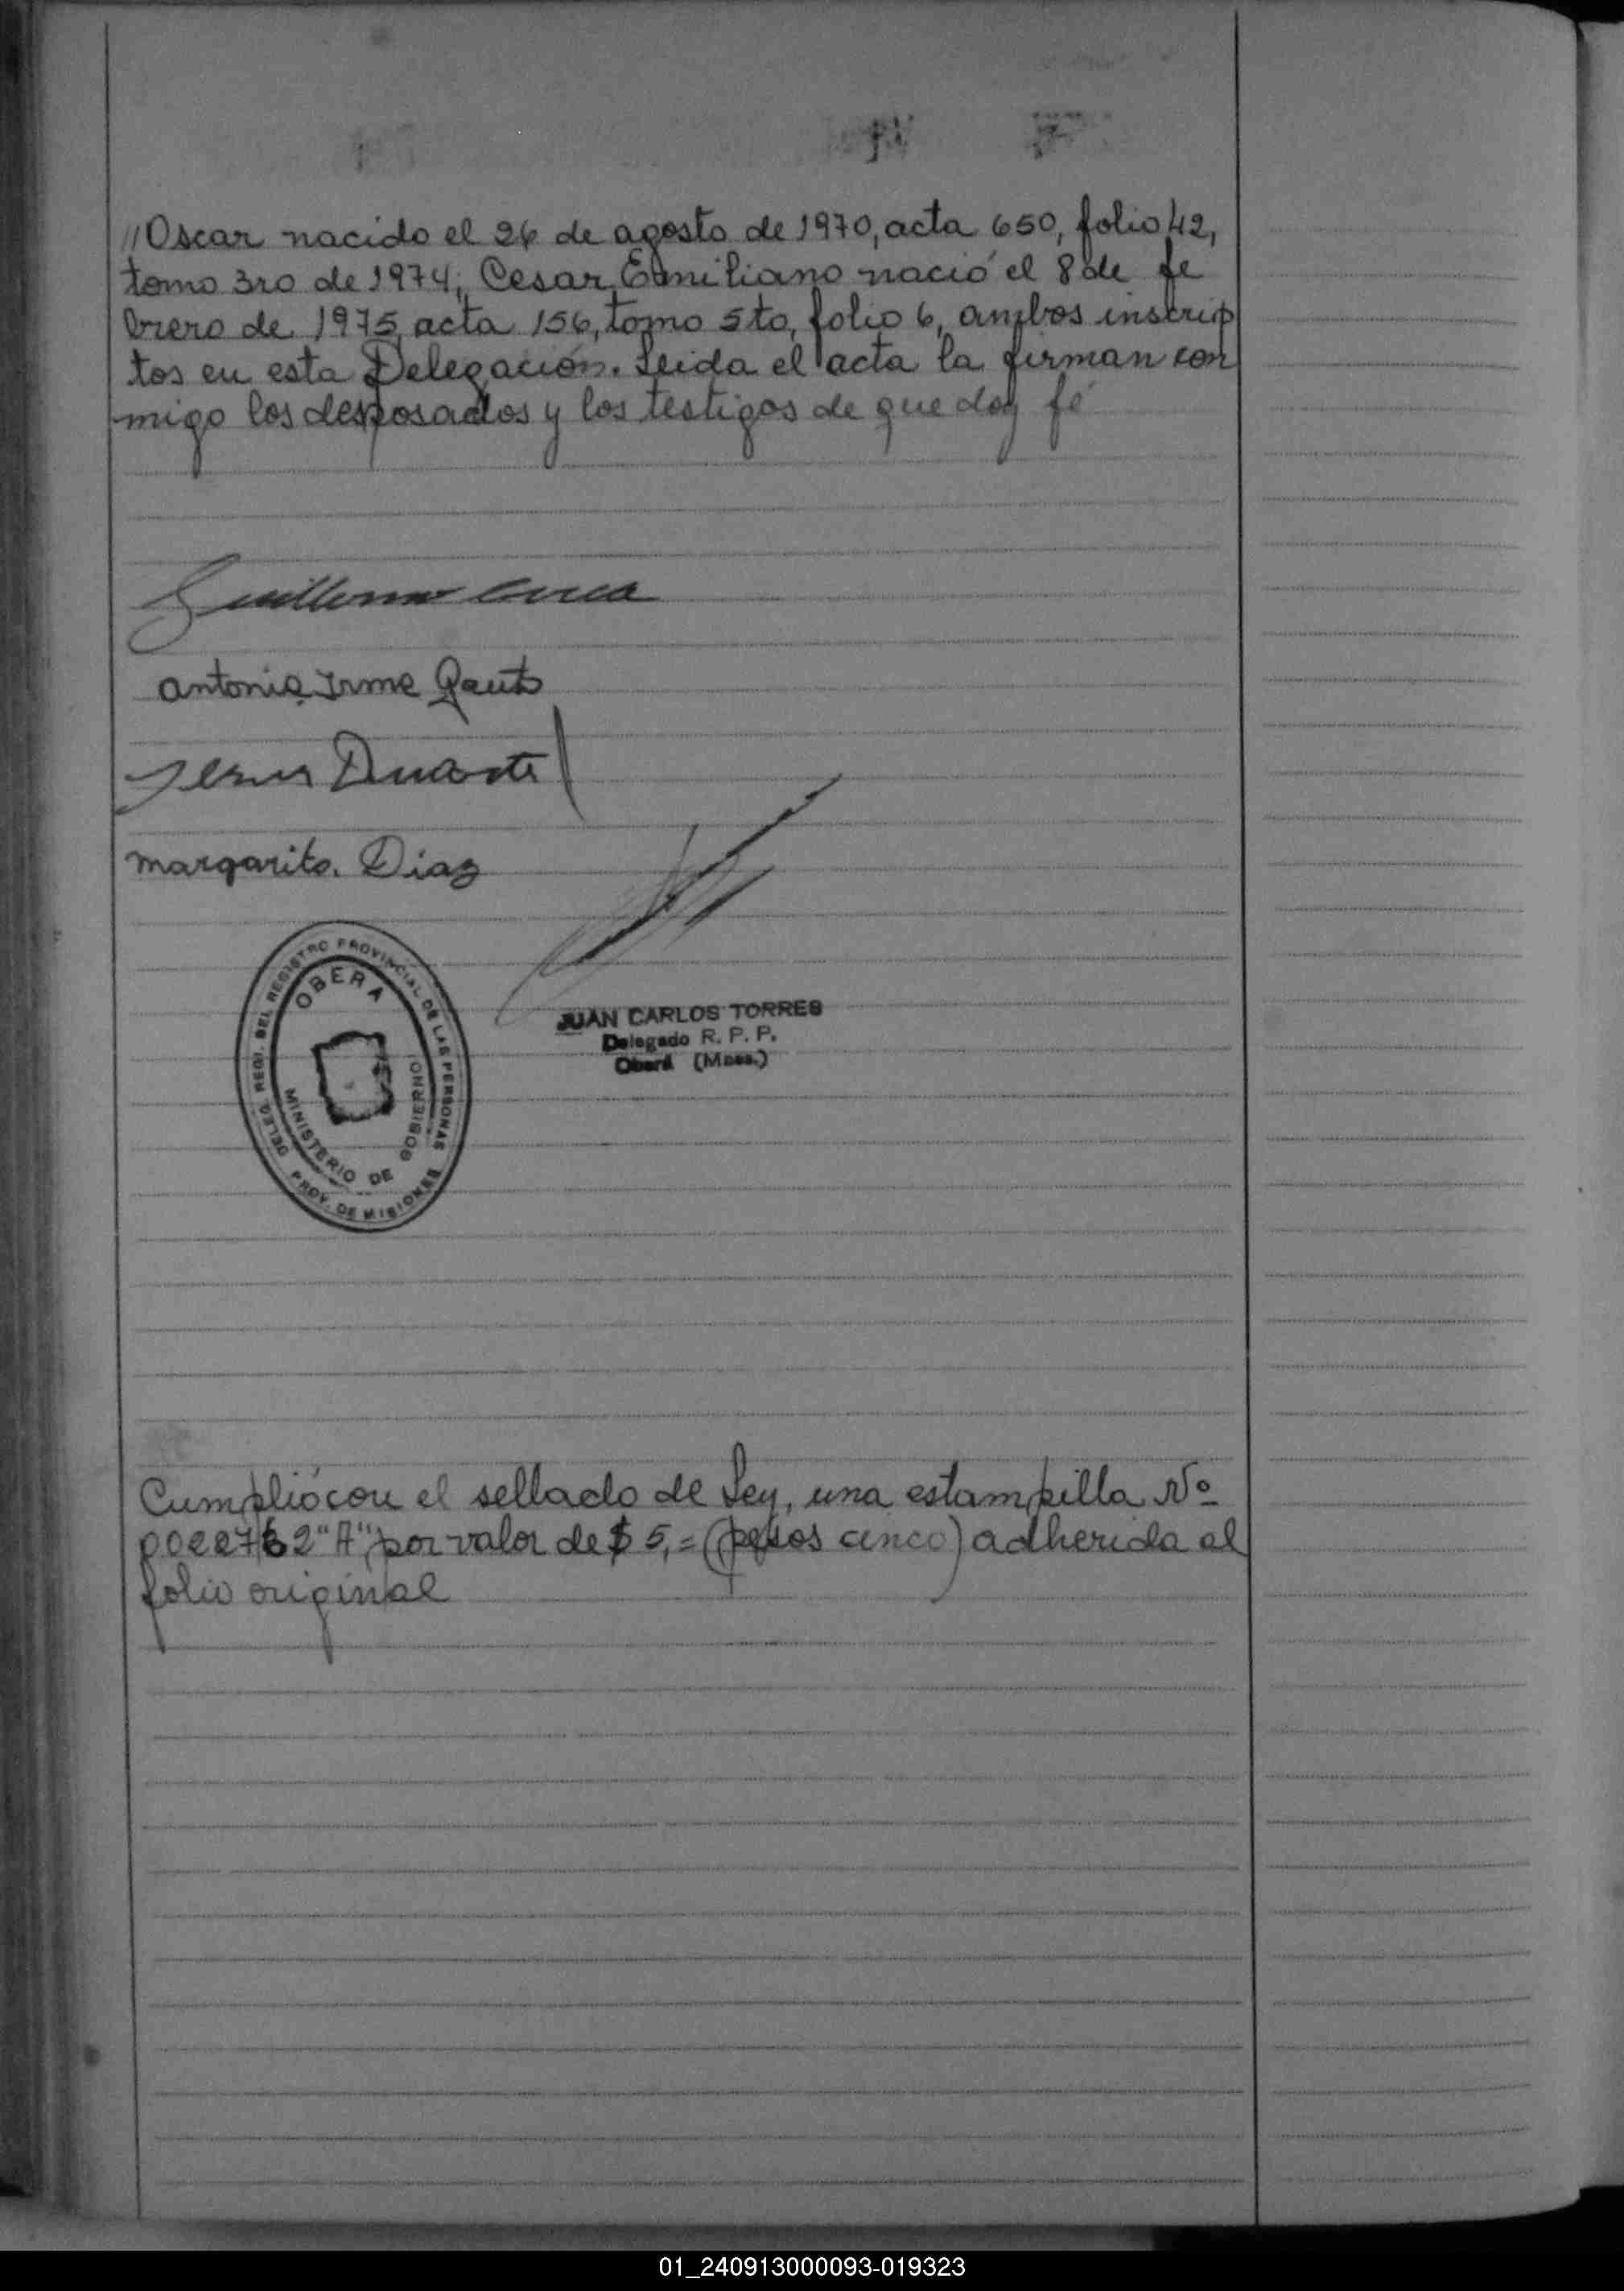 //Oscar nacido el 26 de agosto de 1970, acta 650, folio 42,
tomo 3ro de 1974; Cesar Emiliano nació el 8 de fe
brero de 1975, acta 156, tomo 5to, folio 6, ambos inscrip
tos en esta Delegación. Leida el acta la firman con
migo los desposados y los testigos de que doy fé
Guillermo
antonia Irma Gauto
Jesus Duarte
margarita. Diaz
DELEG. REGI. DEL REGISTRO PROVINCIAL DE LAS PERSONAS
OBERA
MINISTERIO DE GOBIERNO
PROV. DE MISIONES
JUAN CARLOS TORRES
Delegado R. P. P.
Oberá (Mnes.)
Cumplió con el sellado de Ley, una estampilla Nº
"A", por valor de $ 5,= (pesos cinco) adherida al
folio original
01_240913000093-019323